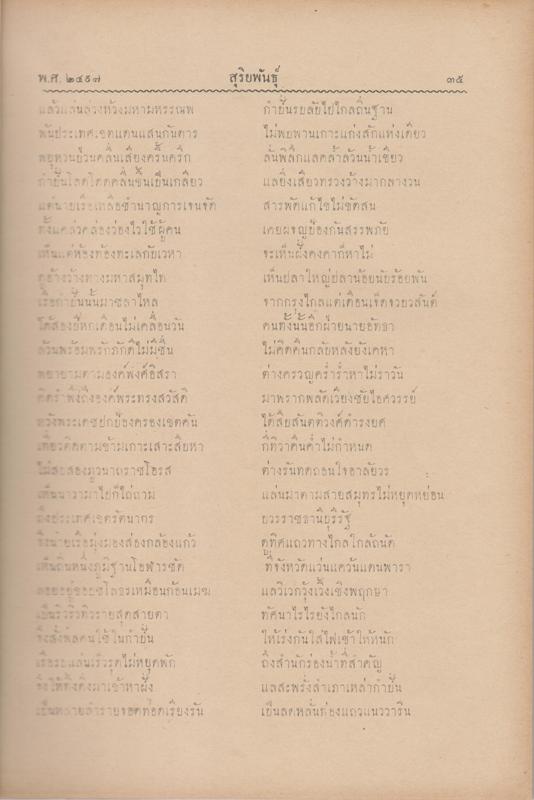 พ.ศ. ๒๔๙๗ สุริยพันธุ์ ๓๕
แล้วแล่นล่วงห้วงมหามหรรณพ กำปั่นรบลัยไปไกลถิ่นฐาน
พ้นประเทศเขตแดนแสนกันดาร ไม่พบพานเกาะแก่งสักแห่งเดียว
พยุหวนป่วนคลื่นเสียงครื้นครึก ลั่นพิลึกแลคล้ำล้วนน้ำเขียว
กำปั่นโลดโดดคลื่นขึ้นเป็นเกลียว แลยิ่งเสียวทรวงว้างมากลางวน
แต่นายเรือเหลือชำนาญการเจนจัด สารพัดแก้ไขไม่ขัดสน
ทั้งแคล่วคล่องว่องไวใช้ผู้คน เคยผจญป้องกันสรรพภัย
เห็นแต่ห้องท้องทะเลกับเวหา จะเห็นฝั่งคงคาก็หาไม่
ดูอ้างว้างทางมหาสมุทไท เห็นปลาใหญ่ปลาน้อยนับร้อยพัน
เรือกำปั่นนั้นมาชลาไหล จากกรุงไกลแต่เดือนเจ็ดจวบวสันต์
ได้สองปีหกเดือนไม่เคลื่อนวัน คนทั้งนั้นอีกฝ่ายนายอัทธา
ล้วนพร้อมพรักภักดีไม่มีชื่น ไม่คิดคืนกลับหลังยังเคหา
พยายามตามองค์พงศ์อิสรา ต่างครวญคร่ำร่ำหาไม่ราวัน
คิดรำพึงถึงองค์พระทรงสวัสดิ์ มาพรากพลัดเวียงชัยไอศวรรย์
หวังพระเดชปกป้องครองเขตคัน ได้สืบสันตติวงศ์ดำรงยศ
เที่ยวติดตามข้ามเกาะเสาะสืบหา กี่ทิวาคืนค่ำไม่กำหนด
ไม่สบสองภูวนาถราชโอรส ต่างรันทดถอนใจอาลัยวร
เห็นนาวามาใบก็ไต่ถาม แล่นมาตามสายสมุทรไม่หยุดหย่อน
ถึงประเทศเขตรัตนากร บวรราชธานีบุรีรัฐ
จึงนายเรือมุ่งมองส่องกล้องแก้ว ดูทิศแถวทางไกลใกล้ถนัด
เห็นถิ่นหนึ่งภูมิฐานโอฬารชัด ที่จังหวัดแว่นแคว้นแดนพารา
แลเวิกวุ้งเวิ้งเชิงพฤกษา
เป็นริ้วริ้วทิวรายสุดสายตา ทัศนาไรไรยังไกลนัก
จึงสั่งพลคนใช้ในกำปั่น ให้เร่งกันใส่ไฟเข้าให้หนัก
เรือรบแล่นเร็วรุดไม่หยุดพัก ถึงสำนักร่องน้ำที่สำคัญ
จึงให้ทิ้งดิ่งมาเข้าหาฝั่ง แลสะพรั่งสำเภาเหล่ากำปั่น
เป็นหลายลำรายจอดทอดเรียงรัน เป็นลดหลั่นท่องแถวแนววาริน